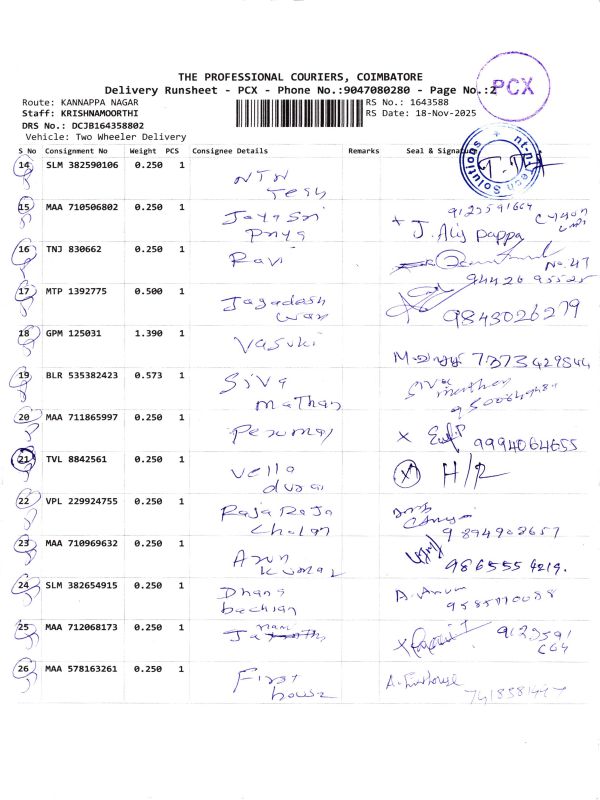 THE PROFESSIONAL COURIERS, COIMBATORE
Delivery Runsheet - PCX - Phone No.:9047080280 - Page No.:2
PCX
Route: KANNAPPA NAGAR
RS No.: 1643588
Staff: KRISHNAMOORTHI
RS Date: 18-Nov-2025
DRS No.: DCJB164358802
Vehicle: Two Wheeler Delivery
S No Consignment No Weight PCS Consignee Details Remarks Seal & Signature
14 SLM 382590106 0.250 1 NTN Tesh
nt-n Tech Solutions
15 MAA 710506802 0.250 1 Jaya Sri priya 9123591664
J. Alis pappa
16 TNJ 830662 0.250 1 Ravi No.47
94426 95525
17 MTP 1392775 0.500 1 Jagadash waran 9843026279
18 GPM 125031 1.390 1 Vasuki 7373429844
19 BLR 535382423 0.573 1 Siva mathan
20 MAA 711865997 0.250 1 Perumal X 9994064655
21 TVL 8842561 0.250 1 Vella durai X H/R
22 VPL 229924755 0.250 1 Raja Raja Cholan 9894902657
23 MAA 710969632 0.250 1 Arun kumar 986555 4219.
24 SLM 382654915 0.250 1 Dhana bachian A. Arun
9585770088
25 MAA 712068173 0.250 1 Ja nani 9123591
664
26 MAA 578163261 0.250 1 First house A. Firsthouse